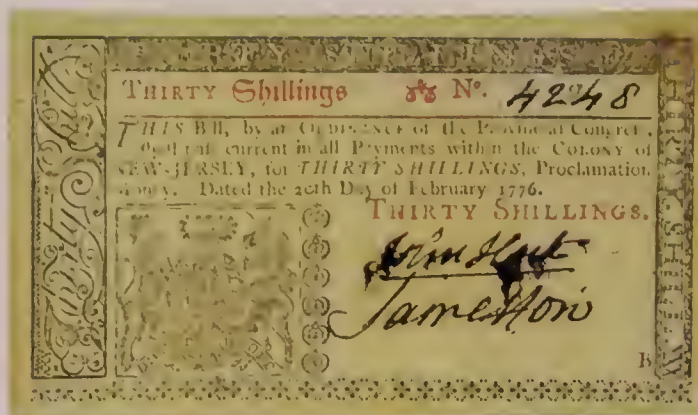 THIRTY Shillings No. 4248
THIS Bill, by an ORDINANCE of the Provincial Congress,
shall pass current in all Payments within the COLONY of
NEW-JERSEY, for THIRTY SHILLINGS, Proclamation
Money. Dated the 20th Day of February 1776.
THIRTY SHILLINGS.
John Hart
B
Thirty Shill
THIRTY SHILLIN